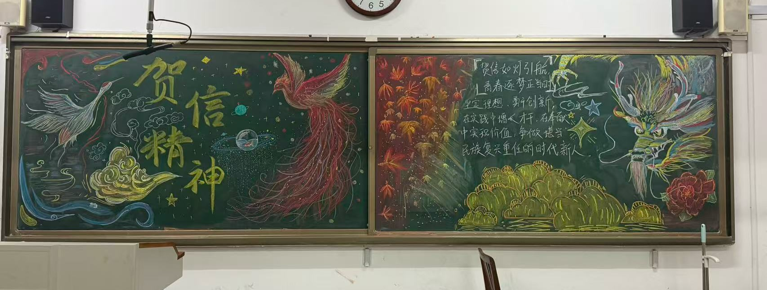 贺信精神
贺信如灯引航
青春逐梦正当时
坚定理想 勇于创新
在实践中增长才干 在奉献
中实现价值 争做堪当
民族复兴重任的时代新人
7 6 5